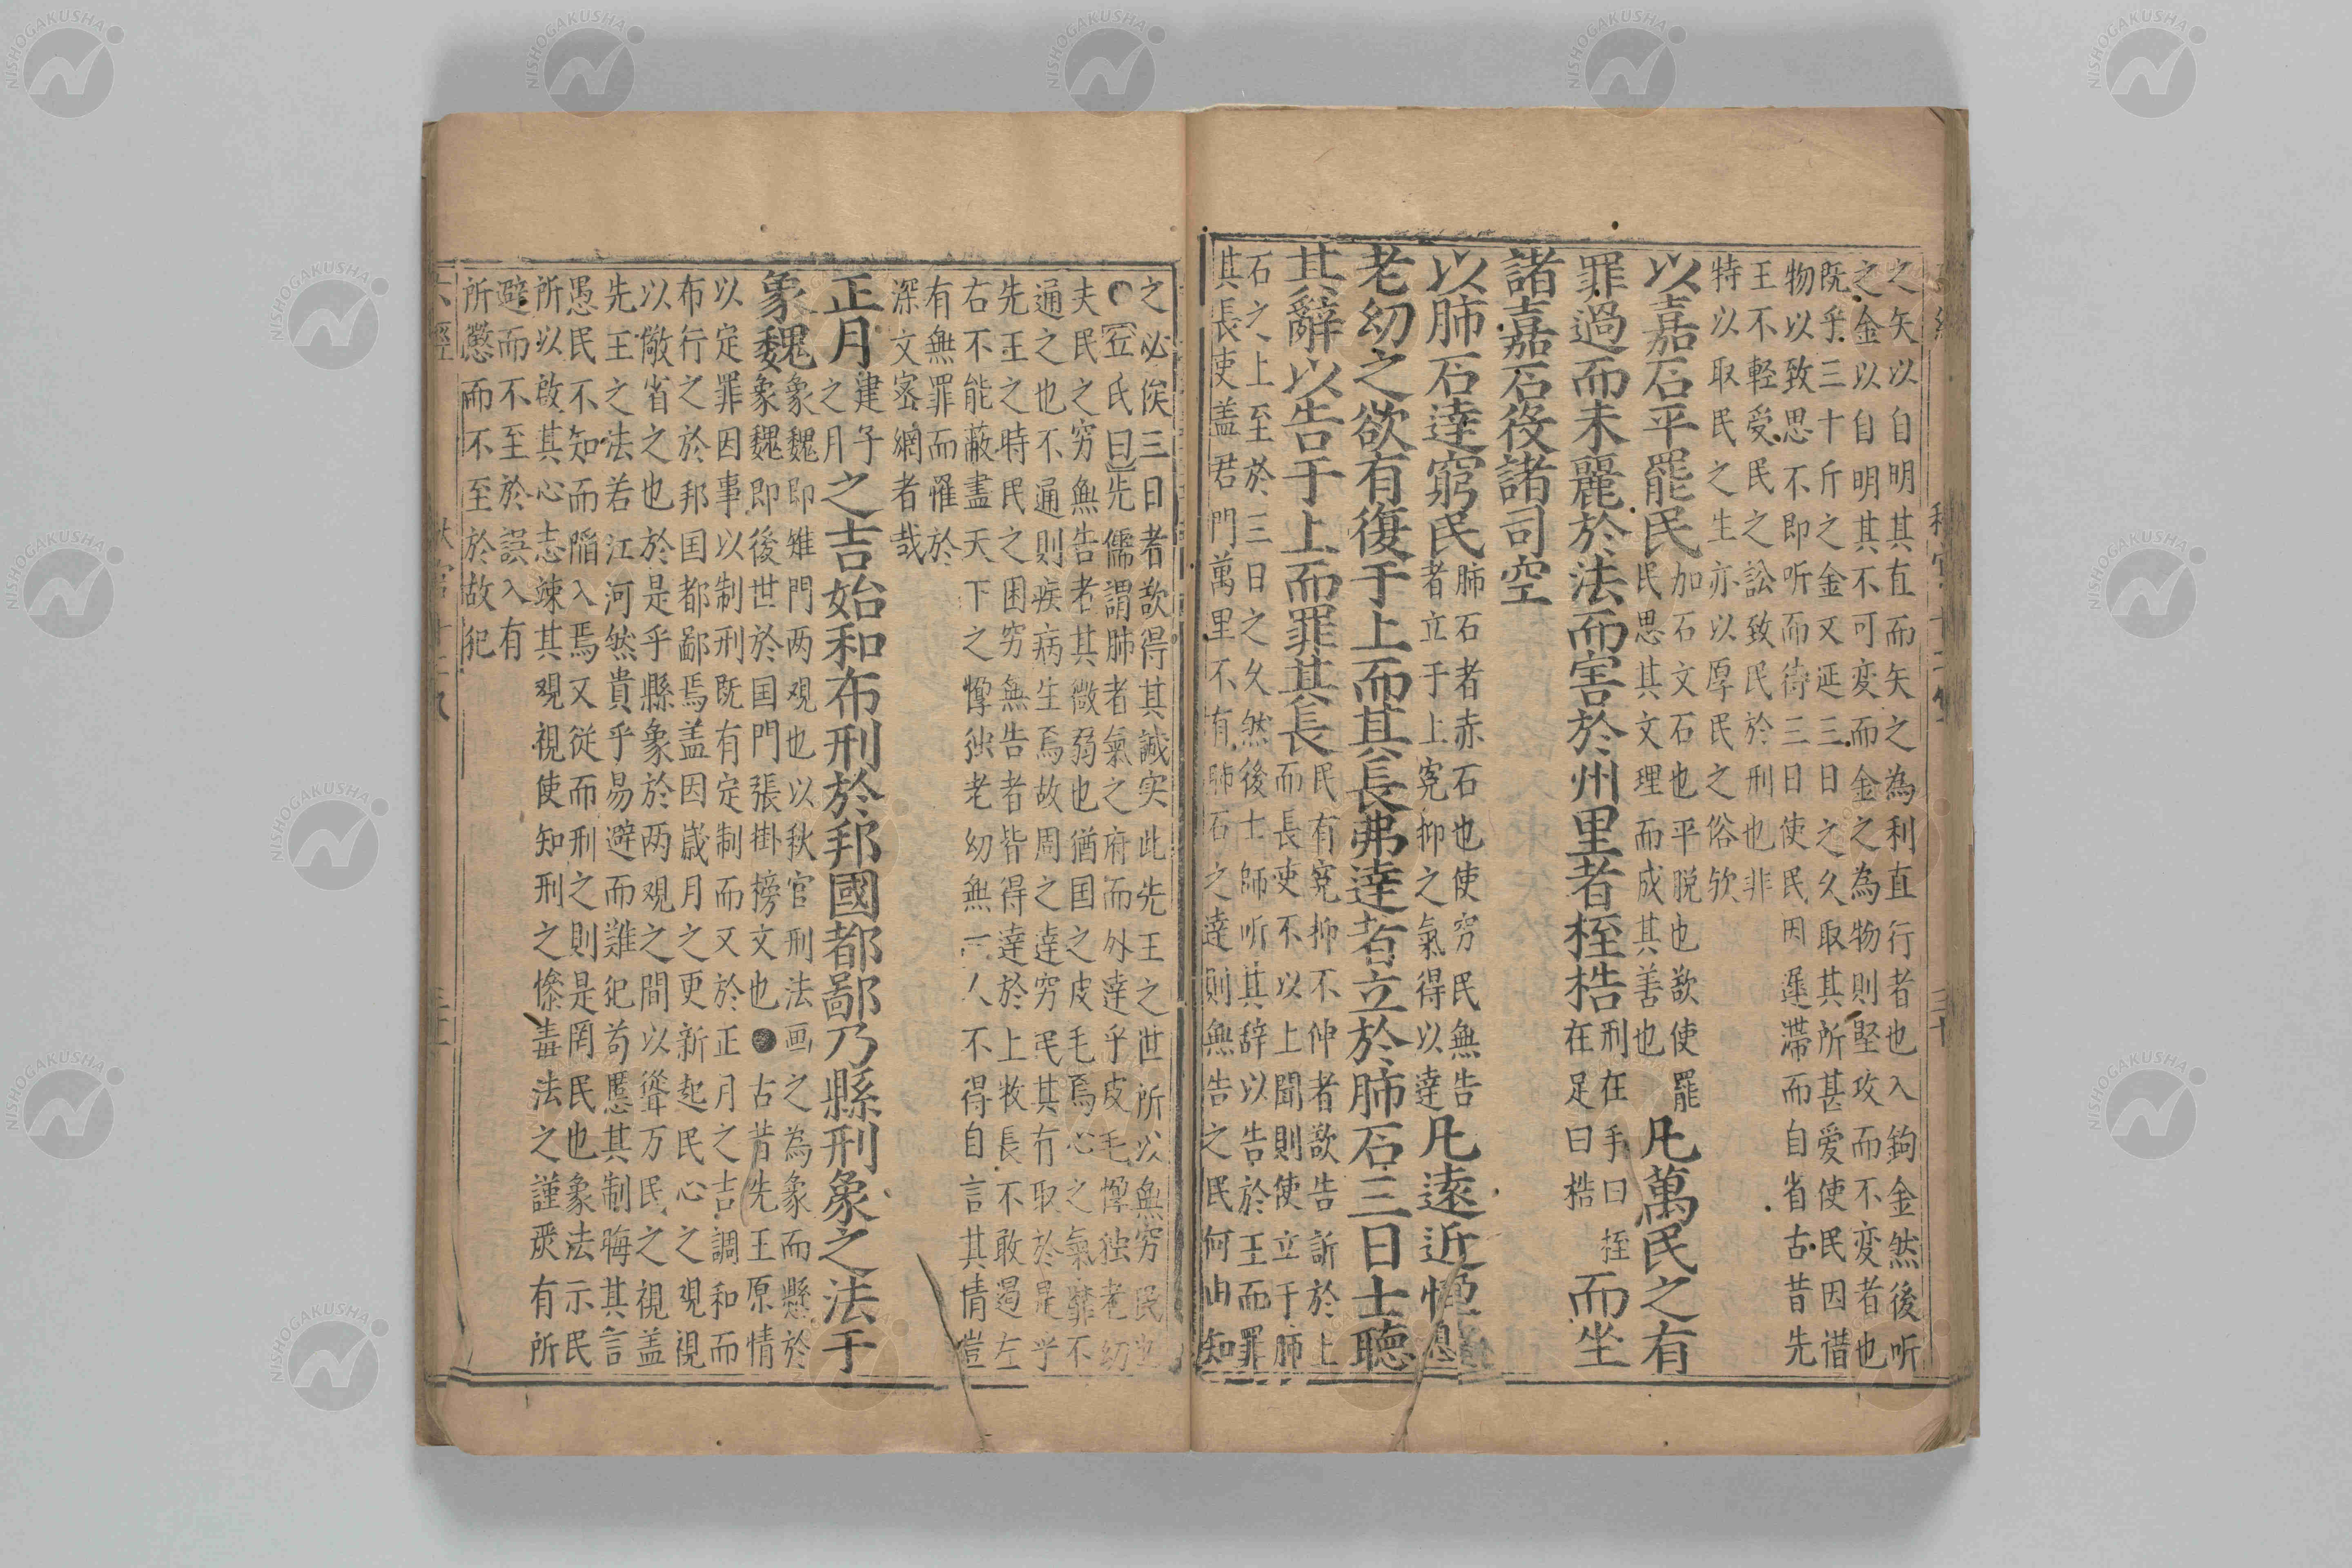 之矢以自明其直而矢之為利直行者也入鉤金然後听
之金以自明其不可変而金之為物則堅攻而不変者也
既乎三十斤之金又延三日之久取其所甚爱使民因惜
物以致思不即听而待三日使民因遲滯而自省古昔先
王不輕受民之訟致民於刑也非
特以取民之生亦以厚民之俗欤
以嘉石平罷民
加石文石也平脱也欲使罷
民思其文理而成其善也
凡萬民之有
罪過而未麗於法而害於州里者桎梏
刑在手曰桎
在足曰梏
而坐
諸嘉石役諸司空
以肺石達窮民
肺石者赤石也使穷民無告
者立于上寃抑之氣得以達
凡遠近惸
老幼之欲有復于上而其長弗達者立於肺石三日士聽
其辭以告于上而罪其長
民有寃抑不伸者欲告訴於上
而長吏不以上聞則使立于肺
石之上至於三日之久然後士師听其辞以告於王而罪
其長吏盖君門萬里不有肺石之達則無告之民何由知
之必俟三日者欲得其誠实此先王之世所以無穷民
●丘氏曰先儒謂肺者氣之府而外達乎皮毛惸独老幼
夫民之穷無告者其微弱也猶国之皮毛焉心之氣靡不
通之也不通則疾病生焉故周之達穷民其有取於是乎
先王之時民之困穷無告者皆得達於上牧長不敢遏左
右不能蔽盡天下之惸独老幼無一人不得自言其情豈
有無罪而罹於
深文密網者哉
正月
建子
之月
之吉始和布刑於邦國都鄙乃縣刑象之法于
象魏
象魏即雉門两观也以秋官刑法画之為象而懸於
象魏即後世於国門張掛榜文也●古昔先王原情
以定罪因事以制刑既有定制而又於正月之吉調和而
布行之於邦国都鄙焉盖因歳月之更新起民心之观視
以儆省之也於是乎縣象於两观之間以聳万民之視盖
先王之法若江河然貴乎易避而難犯苟慝其制晦其言
愚民不知而陥入焉又従而刑之則是罔民也象法示民
所以啟其心志竦其观視使知刑之慘毒法之謹嚴有所
避而不至於誤入有
所懲而不至於故犯